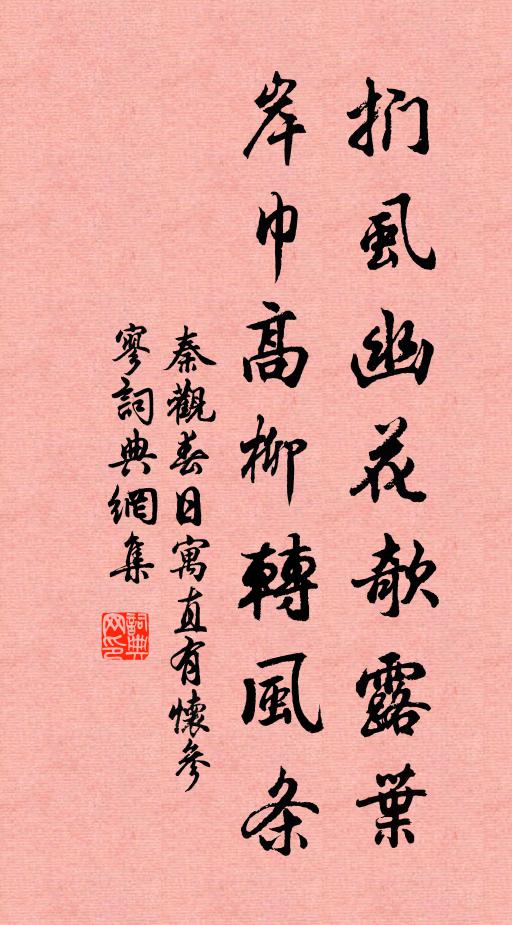 捫虱幽花欹露葉
岸巾高柳轉風条
秦觀春日寓直有懷參
寥詞典網集
詞典網印